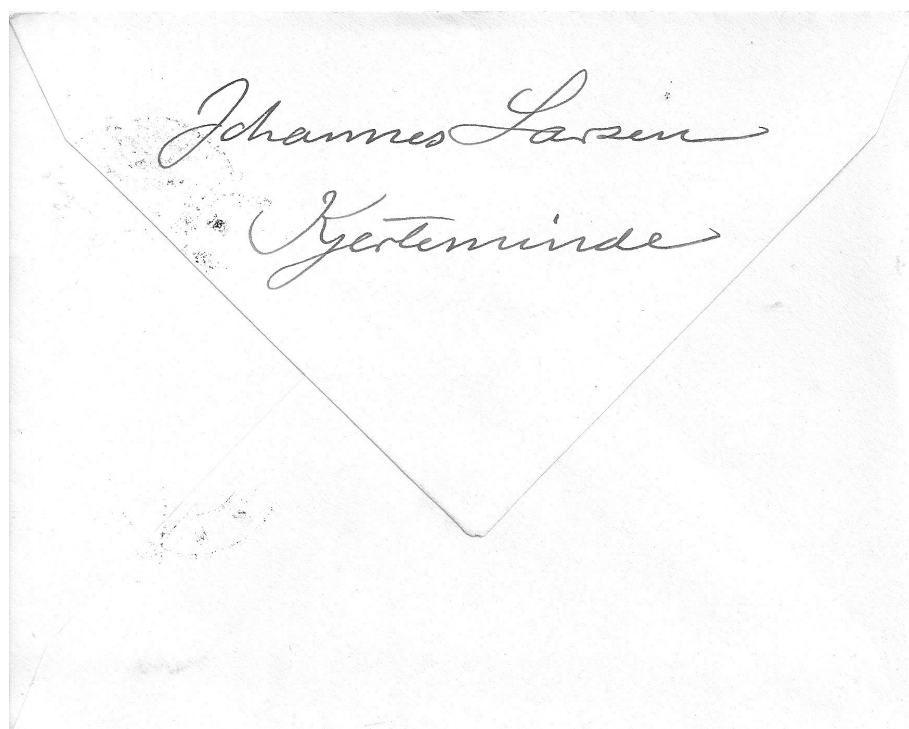 Johannes Larsen
Kjerteminde